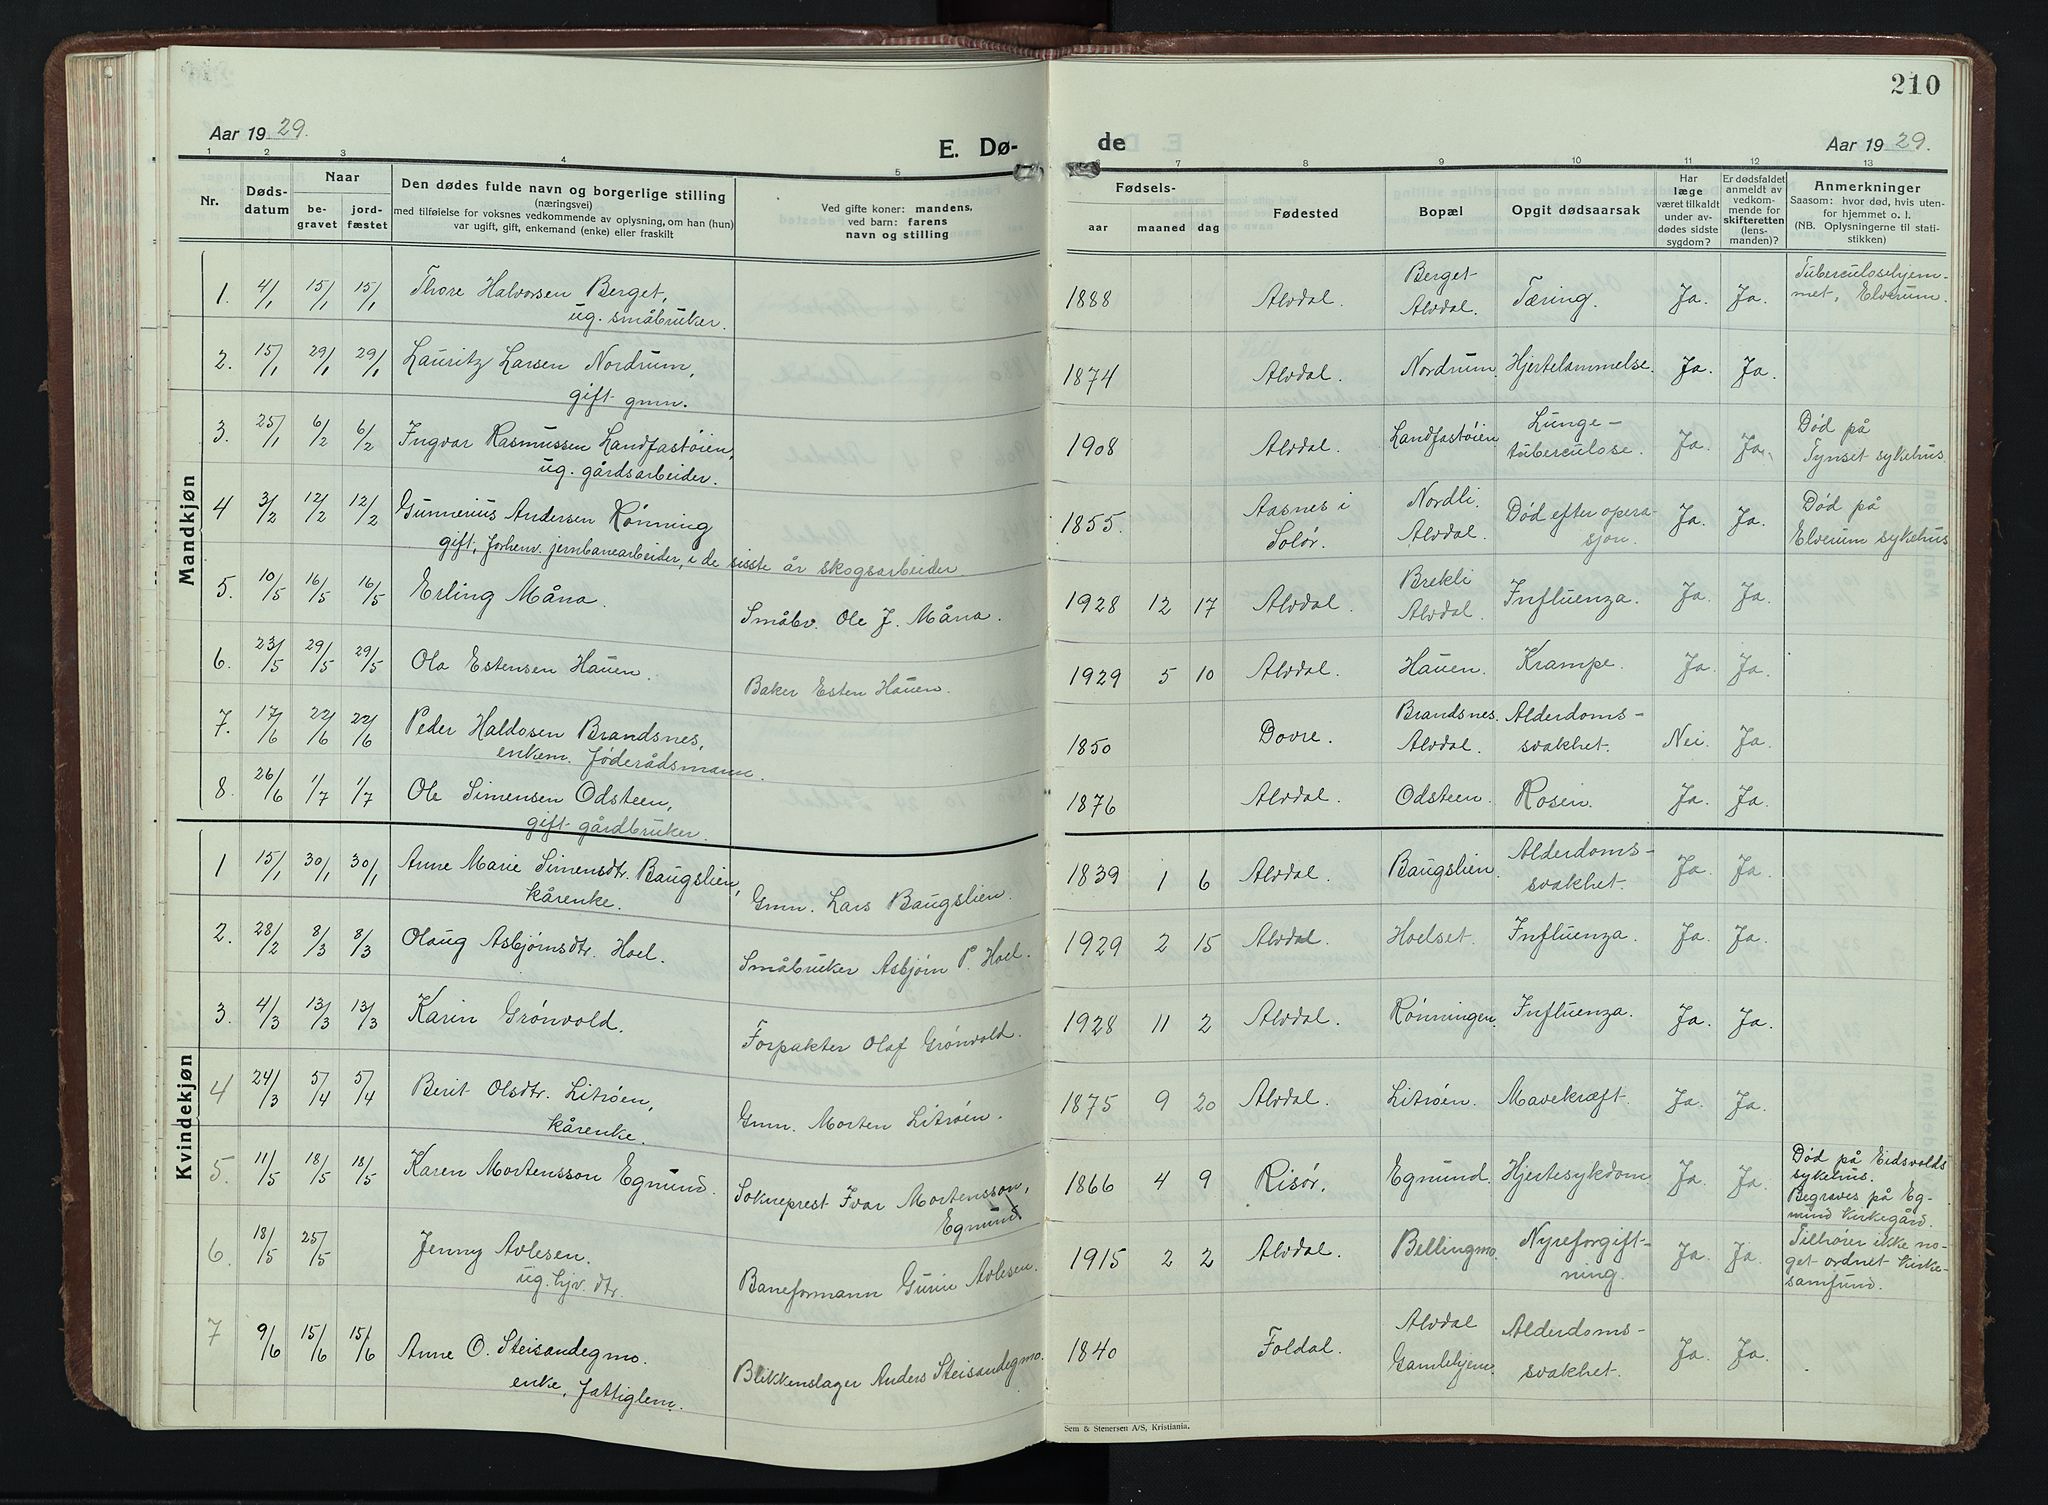 210
Aar 1929.
E. Dø-
de
Aar 1929.
1 2 3 4 5 6 7 8 9 10 11 12 13
Nr.
Døds-
datum
Naar
be-
gravet
jord-
fæstet
Den dødes fulde navn og borgerlige stilling
(næringsvei)
med tilføielse for voksnes vedkommende av oplysning, om han (hun)
var ugift, gift, enkemand (enke) eller fraskilt
Ved gifte koner: mandens,
ved barn: farens
navn og stilling
Fødsels-
aar maaned dag
Fødested
Bopæl
Opgit dødsaarsak
Har
læge
været tilkaldt
under av-
dødes sidste
sygdom?
Er dødsfaldet
anmeldt av
vedkom-
mende for
skifteretten
(lens-
manden)?
Anmerkninger
Saasom: hvor død, hvis uten-
for hjemmet o. l.
(NB. Oplysningerne til stati-
stikken)
Mandkjøn
1. 4/1 15/1 15/1 Thore Halvorsen Berget,
ug. småbruker.
1888 Alvdal. Berget
Alvdal. Tæring. Ja. Ja. Tuberculosehjem-
met, Elverum.
2. 15/1 29/1 29/1 Lauritz Larsen Nordrum,
gift gmn.
1874 Alvdal. Nordrum. Hjertelammelse. Ja. Ja.
3. 25/1 6/2 6/2 Ingvar Rasmussen Landfastøien,
ug. gårdsarbeider.
1908 Alvdal. Landfastøien. Lunge-
tuberculose. Ja. Ja. Død på
Tynset sykehus
4 3/2 12/2 12/2 Gunnerius Andersen Rønning
gift, forhenv. jernbanearbeider, i de sisste år skogsarbeider.
1855. Aasnes i
Solør. Nordli
Alvdal. Død efter opera-
sjon. Ja. Ja. Død på
Elverum sykehus
5. 10/5 16/5 16/5 Erling Måna.
Småbr. Ole J. Måna.
1928 12 17 Alvdal. Brekli
Alvdal. Influenza. Ja. Ja.
6. 23/5 29/5 29/5 Ola Estensen Hauen.
Baker Esten Hauen.
1929 5 10 Alvdal. Hauen. Krampe. Ja. Ja.
7. 17/6 22/6 22/6 Peder Haldosen Brandsnes,
enkem.føderådsmann.
1850 Dovre. Brandsnes.
Alvdal. Alderdoms-
svakhet. Nei. Ja.
8. 26/6 1/7 1/7 Ole Simensen Odsteen,
gift gårdbruker.
1876 Alvdal. Odsteen. Rosen. Ja. Ja.
Kvindekjøn
1 15/1 30/1 30/1 Anne Marie Simensdtr. Baugslien,
kårenke.
Gmn. Lars Baugslien.
1839 1 6 Alvdal. Baugslien. Alderdoms-
svakhet. Ja. Ja.
2. 28/2 8/3 8/3 Olaug Asbjørnsdtr. Hoel.
Småbruker Asbjørn P. Hoel.
1929 2 15 Alvdal. Hoelset. Influenza. Ja. Ja.
3. 4/3 13/3 13/3 Karin Grønvold.
Forpakter Olaf Grønvold.
1928 11 2 Alvdal. Rønningen. Influenza. Ja. Ja.
4 24/3 5/4 5/4 Berit Olsdtr. Litrøen,
kårenke.
Gmn. Morten Litrøen.
1875 9 20 Alvdal. Litrøen. Mavekræft. Ja. Ja.
5. 11/5 18/5 18/5 Karen Mortensson Egnund.
Sokneprest Ivar Mortensson,
Egnund
1866 4 9 Risør. Egnund. Hjertesykdom. Ja. Ja. Død på Eidsvolds
sykehus.
Begraves på Eg-
nund kirkegård.
6 18/5 25/5 Jenny Avlesen.
ug. hjv. dtr.
Baneformann Avlesen.
1915 2 2 Alvdal. Bellingmo. Nyreforgift-
ning. Ja. Ja. Tilhører ikke no-
get ordnet kirke-
samfund.
7 9/6 15/6 15/6 Anne O. Steisandegmo.
enke, fattiglem.
Blikkenslager Anders Steisandegmo.
1840 Foldal. Alvdal
Gamlehjem. Alderdoms-
svakhet. Ja. Ja.
Sem & Stenersen A/S, Kristiania.